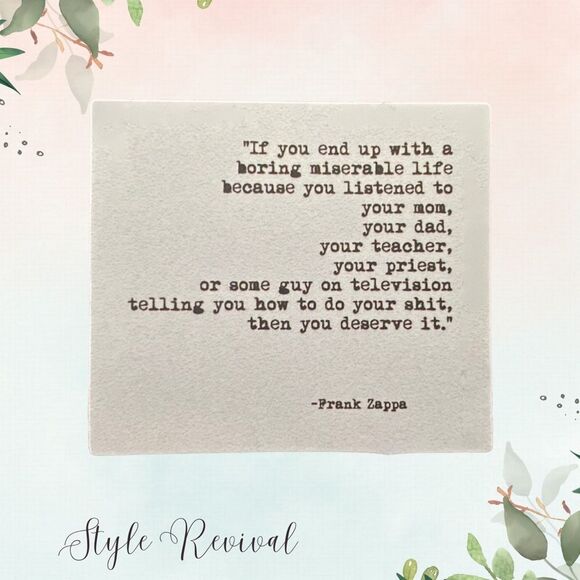 "If you end up with a
boring miserable life
because you listened to
your mom,
your dad,
your teacher,
your priest,
or some guy on television
telling you how to do your shit,
then you deserve it."
-Frank Zappa
Style Revival